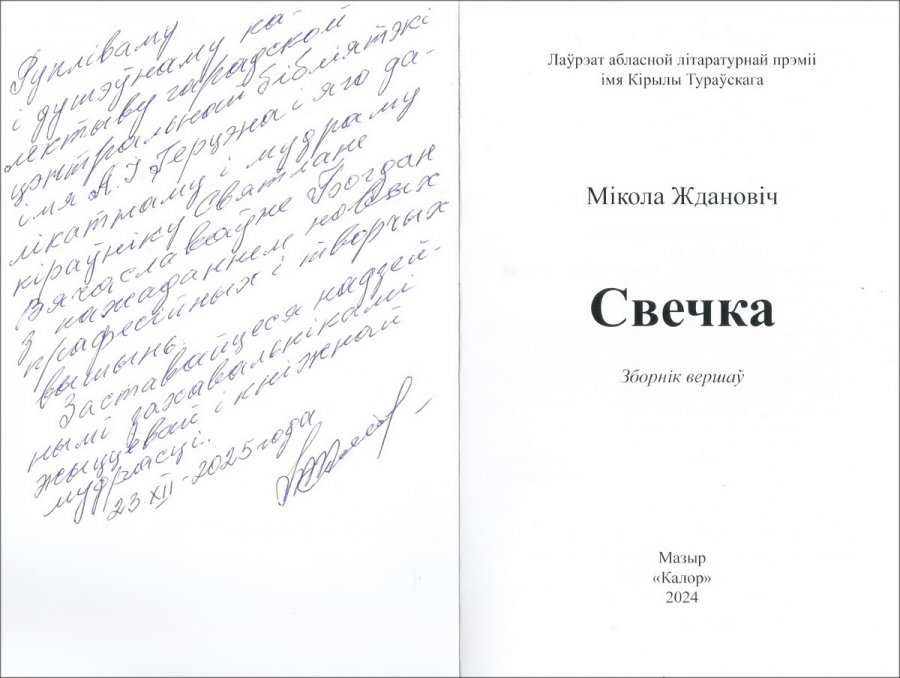 РуплівAму
і душэўнаму ка-
лектыву гарадской
цэнтральнай бібліятэкі
імя А.І Герцэна і яго да-
лікатнаму і мудраму
кіраўніку Святлане
Вячаславаўне Богдан
З пажаданнем новых
прафесійных і творчых
вышынь.
Заставайцеся надзей-
нымі захавальнікамі
жыццёвай і кніжнай
мудрасці.
23.XII-2025 года
Лаўрэат абласной літаратурнай прэміі
імя Кірылы Тураўскага
Мікола Ждановіч
Свечка
Зборнік вершаў
Мазыр
«Калор»
2024